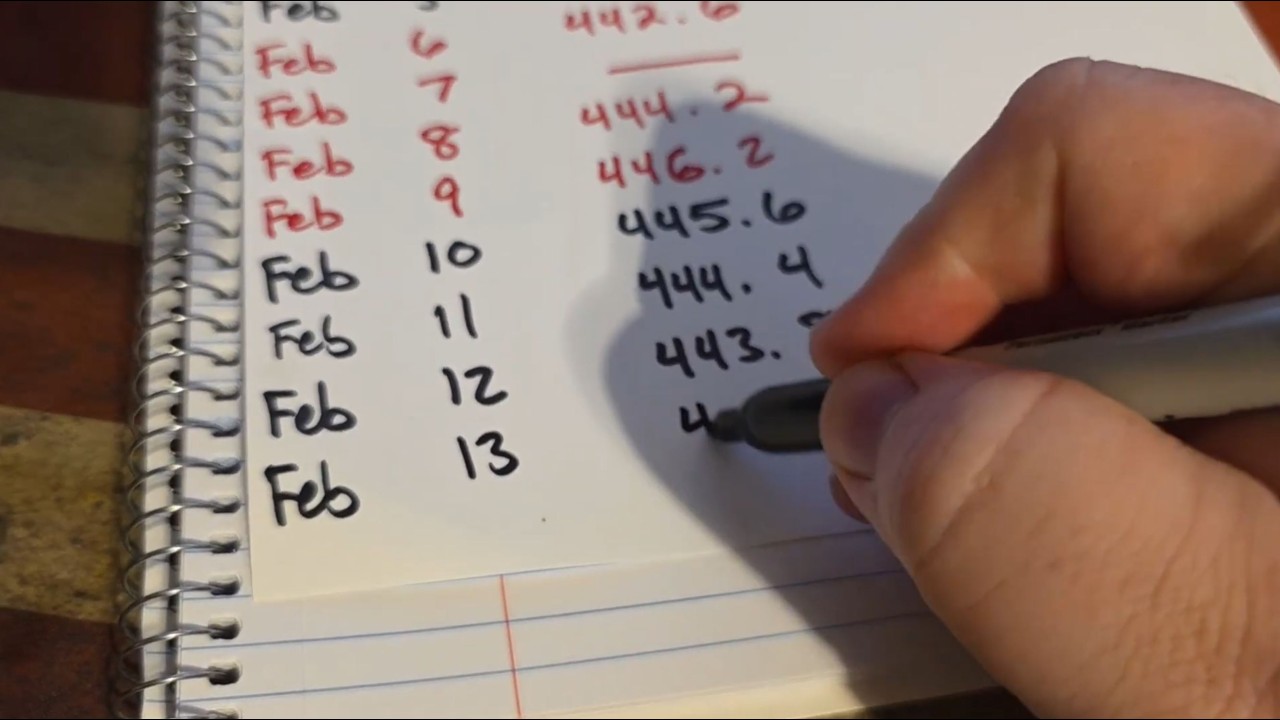 Feb 442.6
Feb 6 —
Feb 7 444.2
Feb 8 446.2
Feb 9 445.6
Feb 10 444.4
Feb 11 443.
Feb 12 4
Feb 13